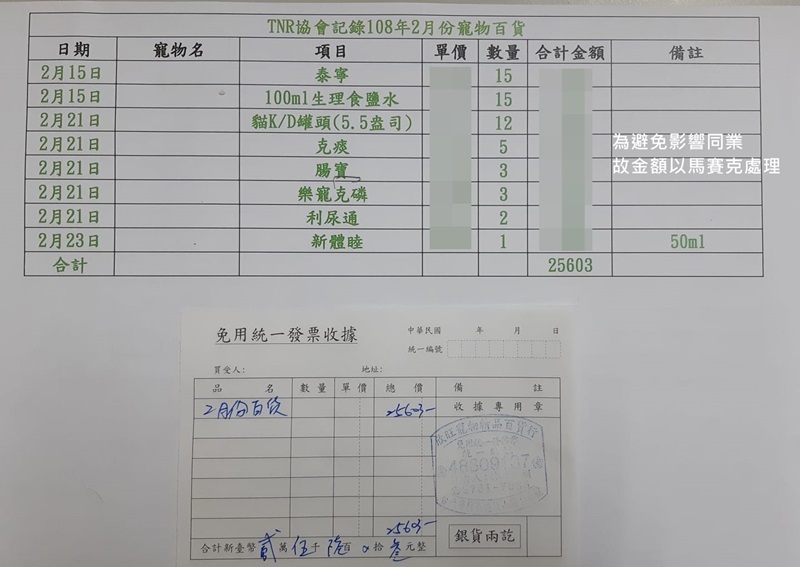 TNR協會記錄108年2月份寵物百貨
日期 寵物名 項目 單價 數量 合計金額 備註
2月15日 泰寧 15
2月15日 100ml生理食鹽水 15
2月21日 貓K/D罐頭(5.5盎司) 12
2月21日 克痰 5
2月21日 腸寶 3
2月21日 樂寵克磷 3
2月21日 利尿通 2
2月23日 新體睦 1 50ml
合計 25603
為避免影響同業
故金額以馬賽克處理
免用統一發票收據
中華民國 年 月 日
統一編號
買受人: 地址:
品名 數量 單價 總價 備註
2月份百貨 25603- 收據專用章
寵物物品百貨行
25603-
合計新臺幣 貳萬 伍千 陸百 0拾 叁元整
銀貨兩訖